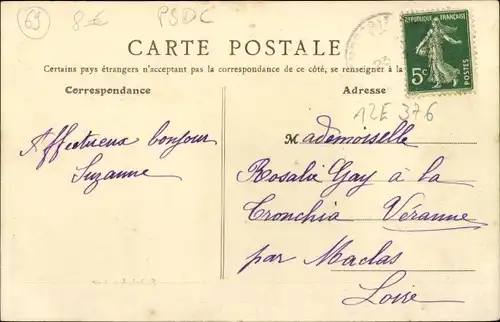 69
8€
PSDC
CARTE POSTALE
RÉPUBLIQUE FRANÇAISE
5c
POSTES
Certains pays étrangers n'acceptent pas la correspondance de ce côté, se renseigner à la
Correspondance
Adresse
12E 376
Affectueux bonjour
Suzanne
Mademoiselle
Rosalie Gay à la
Cronchia Véranne
par Maclas
Loire